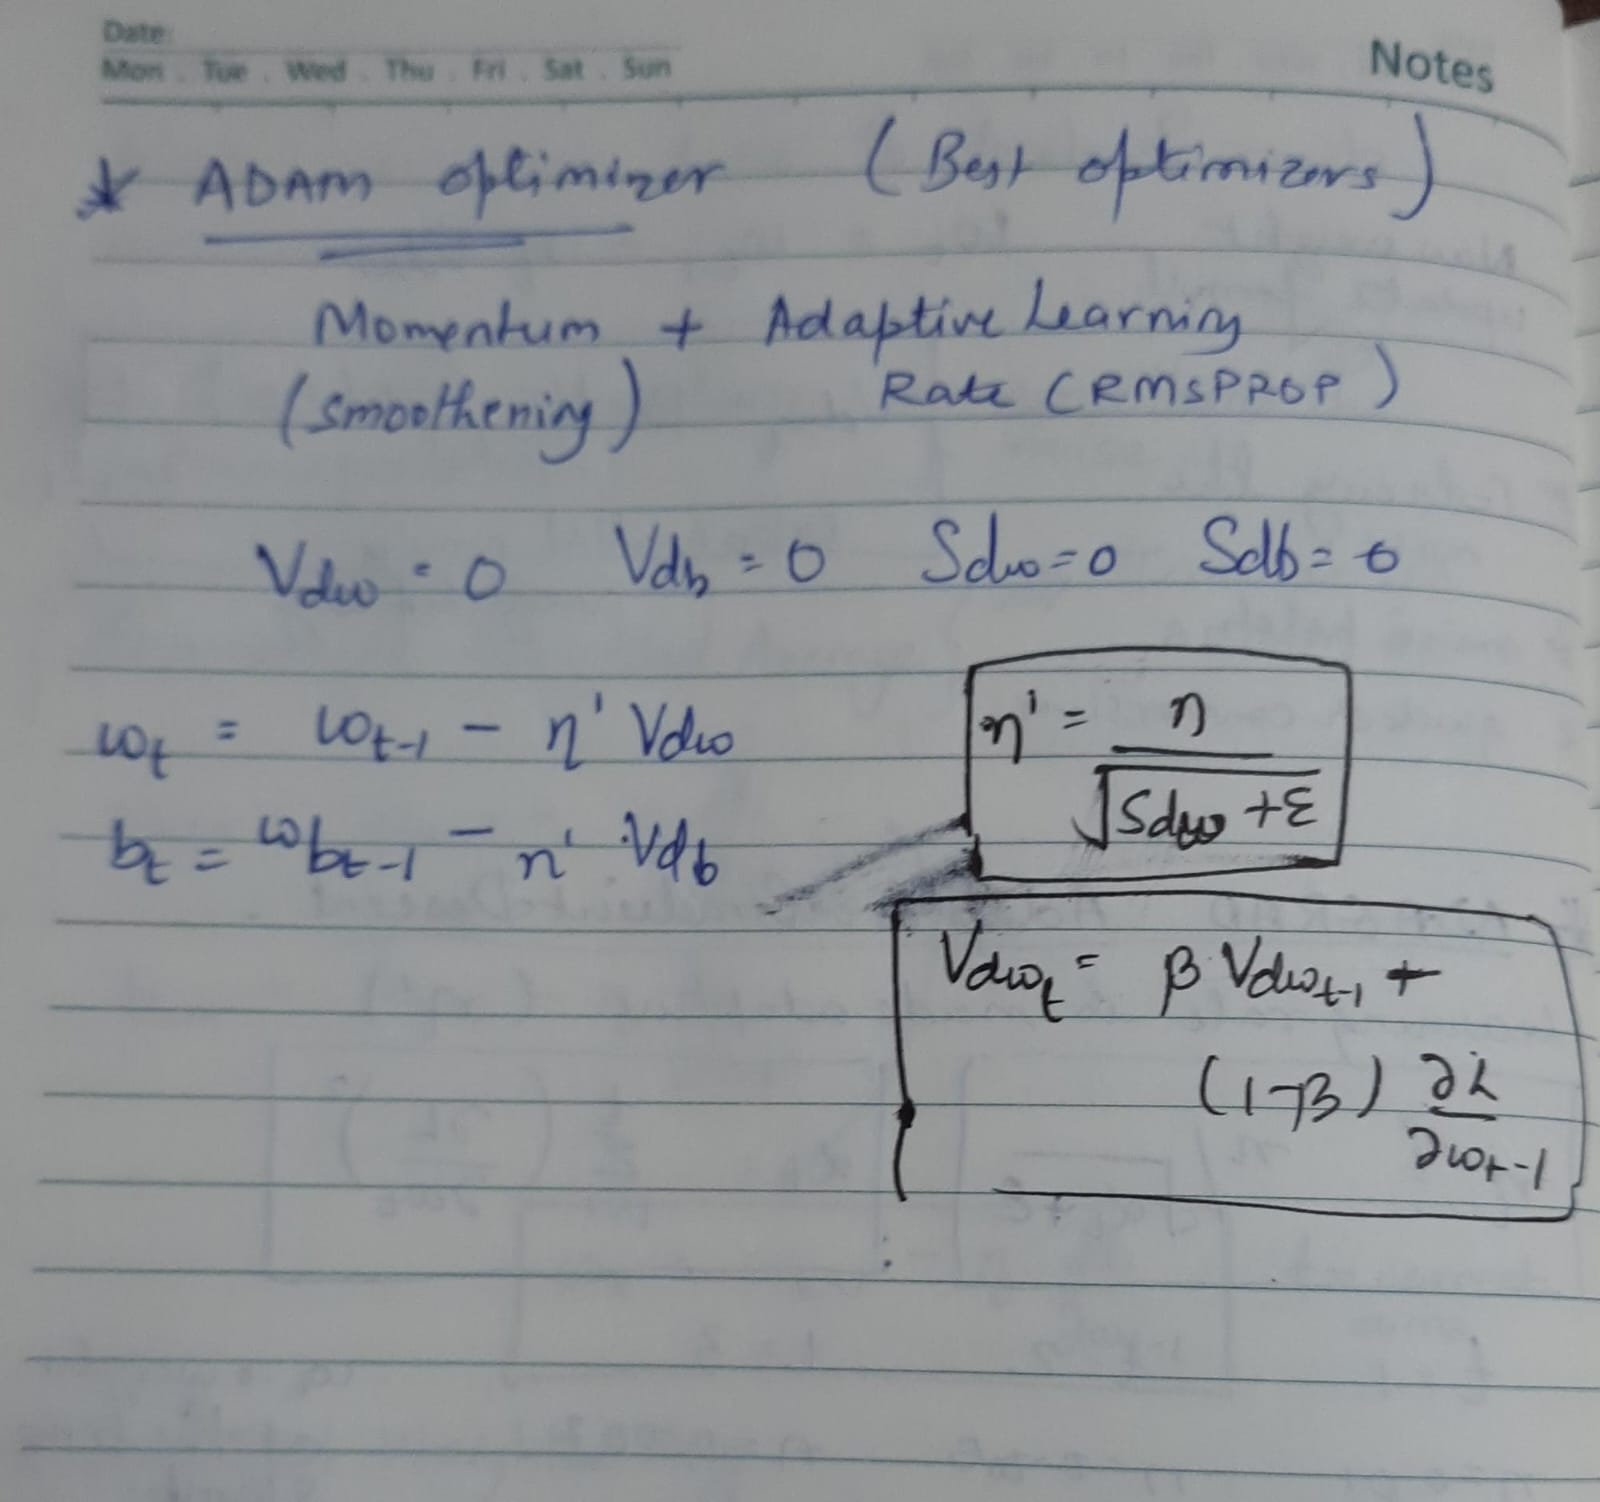 Date:
Mon . Tue . Wed . Thu . Fri . Sat . Sun
Notes
* ADAM optimizer (Best optimizors)
Momentum + Adaptive Learning
(smoothening) Rate (RMSPROP)
Vdw = 0 Vdb = 0 Sdw = 0 Sdb = 0
wt = wt-1 - η' Vdw
η' = η / √(Sdw + ε)
bt = wbt-1 - η' Vdb
Vdwt = β Vdwt-1 +
(1-β) ∂L / ∂wt-1